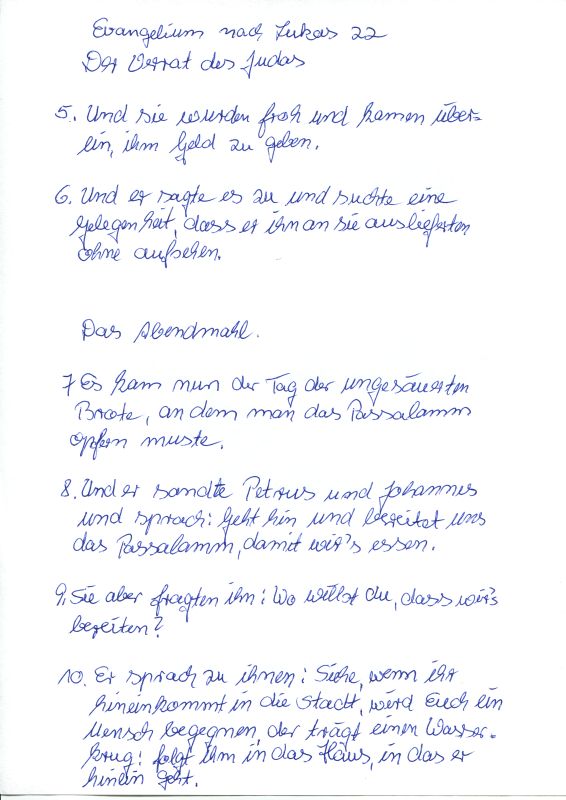 Evangelium nach Lukas 22
Der Verrat des Judas
5. Und sie wurden froh und kamen über-
ein, ihm Geld zu geben.
6. Und er sagte es zu und suchte eine
Gelegenheit, dass er ihn an sie ausliefertn
ohne aufsehen.
Das Abendmahl.
7 Es kam nun der Tag der ungesäuerten
Brote, an dem man das Passalamm
opfern muste.
8. Und er sandte Petrus und Johannes
und sprach: Geht hin und bereitet uns
das Passalamm, damit wir's essen.
9. Sie aber fragten ihn: Wo willst du, dass wir's
bereiten?
10. Er sprach zu ihnen: Siehe, wenn ihr
hineinkommt in die Stadt, wird Euch ein
Mensch begegnen, der trägt einen Wasser-
krug: folgt ihm in das Haus, in das er
hinein geht.